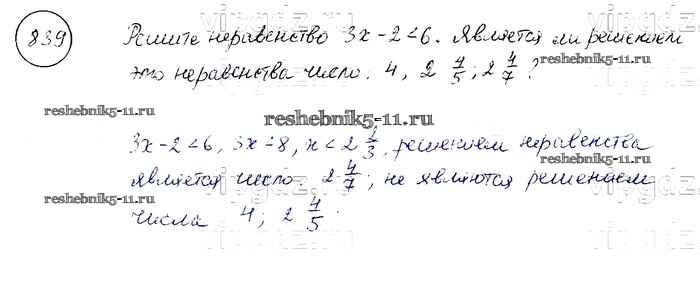 839
Решите неравенство 3x - 2 < 6. Является ли решением
это неравенства число. 4, 2 4/5; 2 4/7?
reshebnik5-11.ru reshebnik5-11.ru
reshebnik5-11.ru
3x - 2 < 6, 3x < 8, x < 2 2/3, решением неравенства
reshebnik5-11.ru
является число. 2 4/7, не являются решением
reshebnik5-11.ru reshebnik5-11.ru
числа 4; 2 4/5.